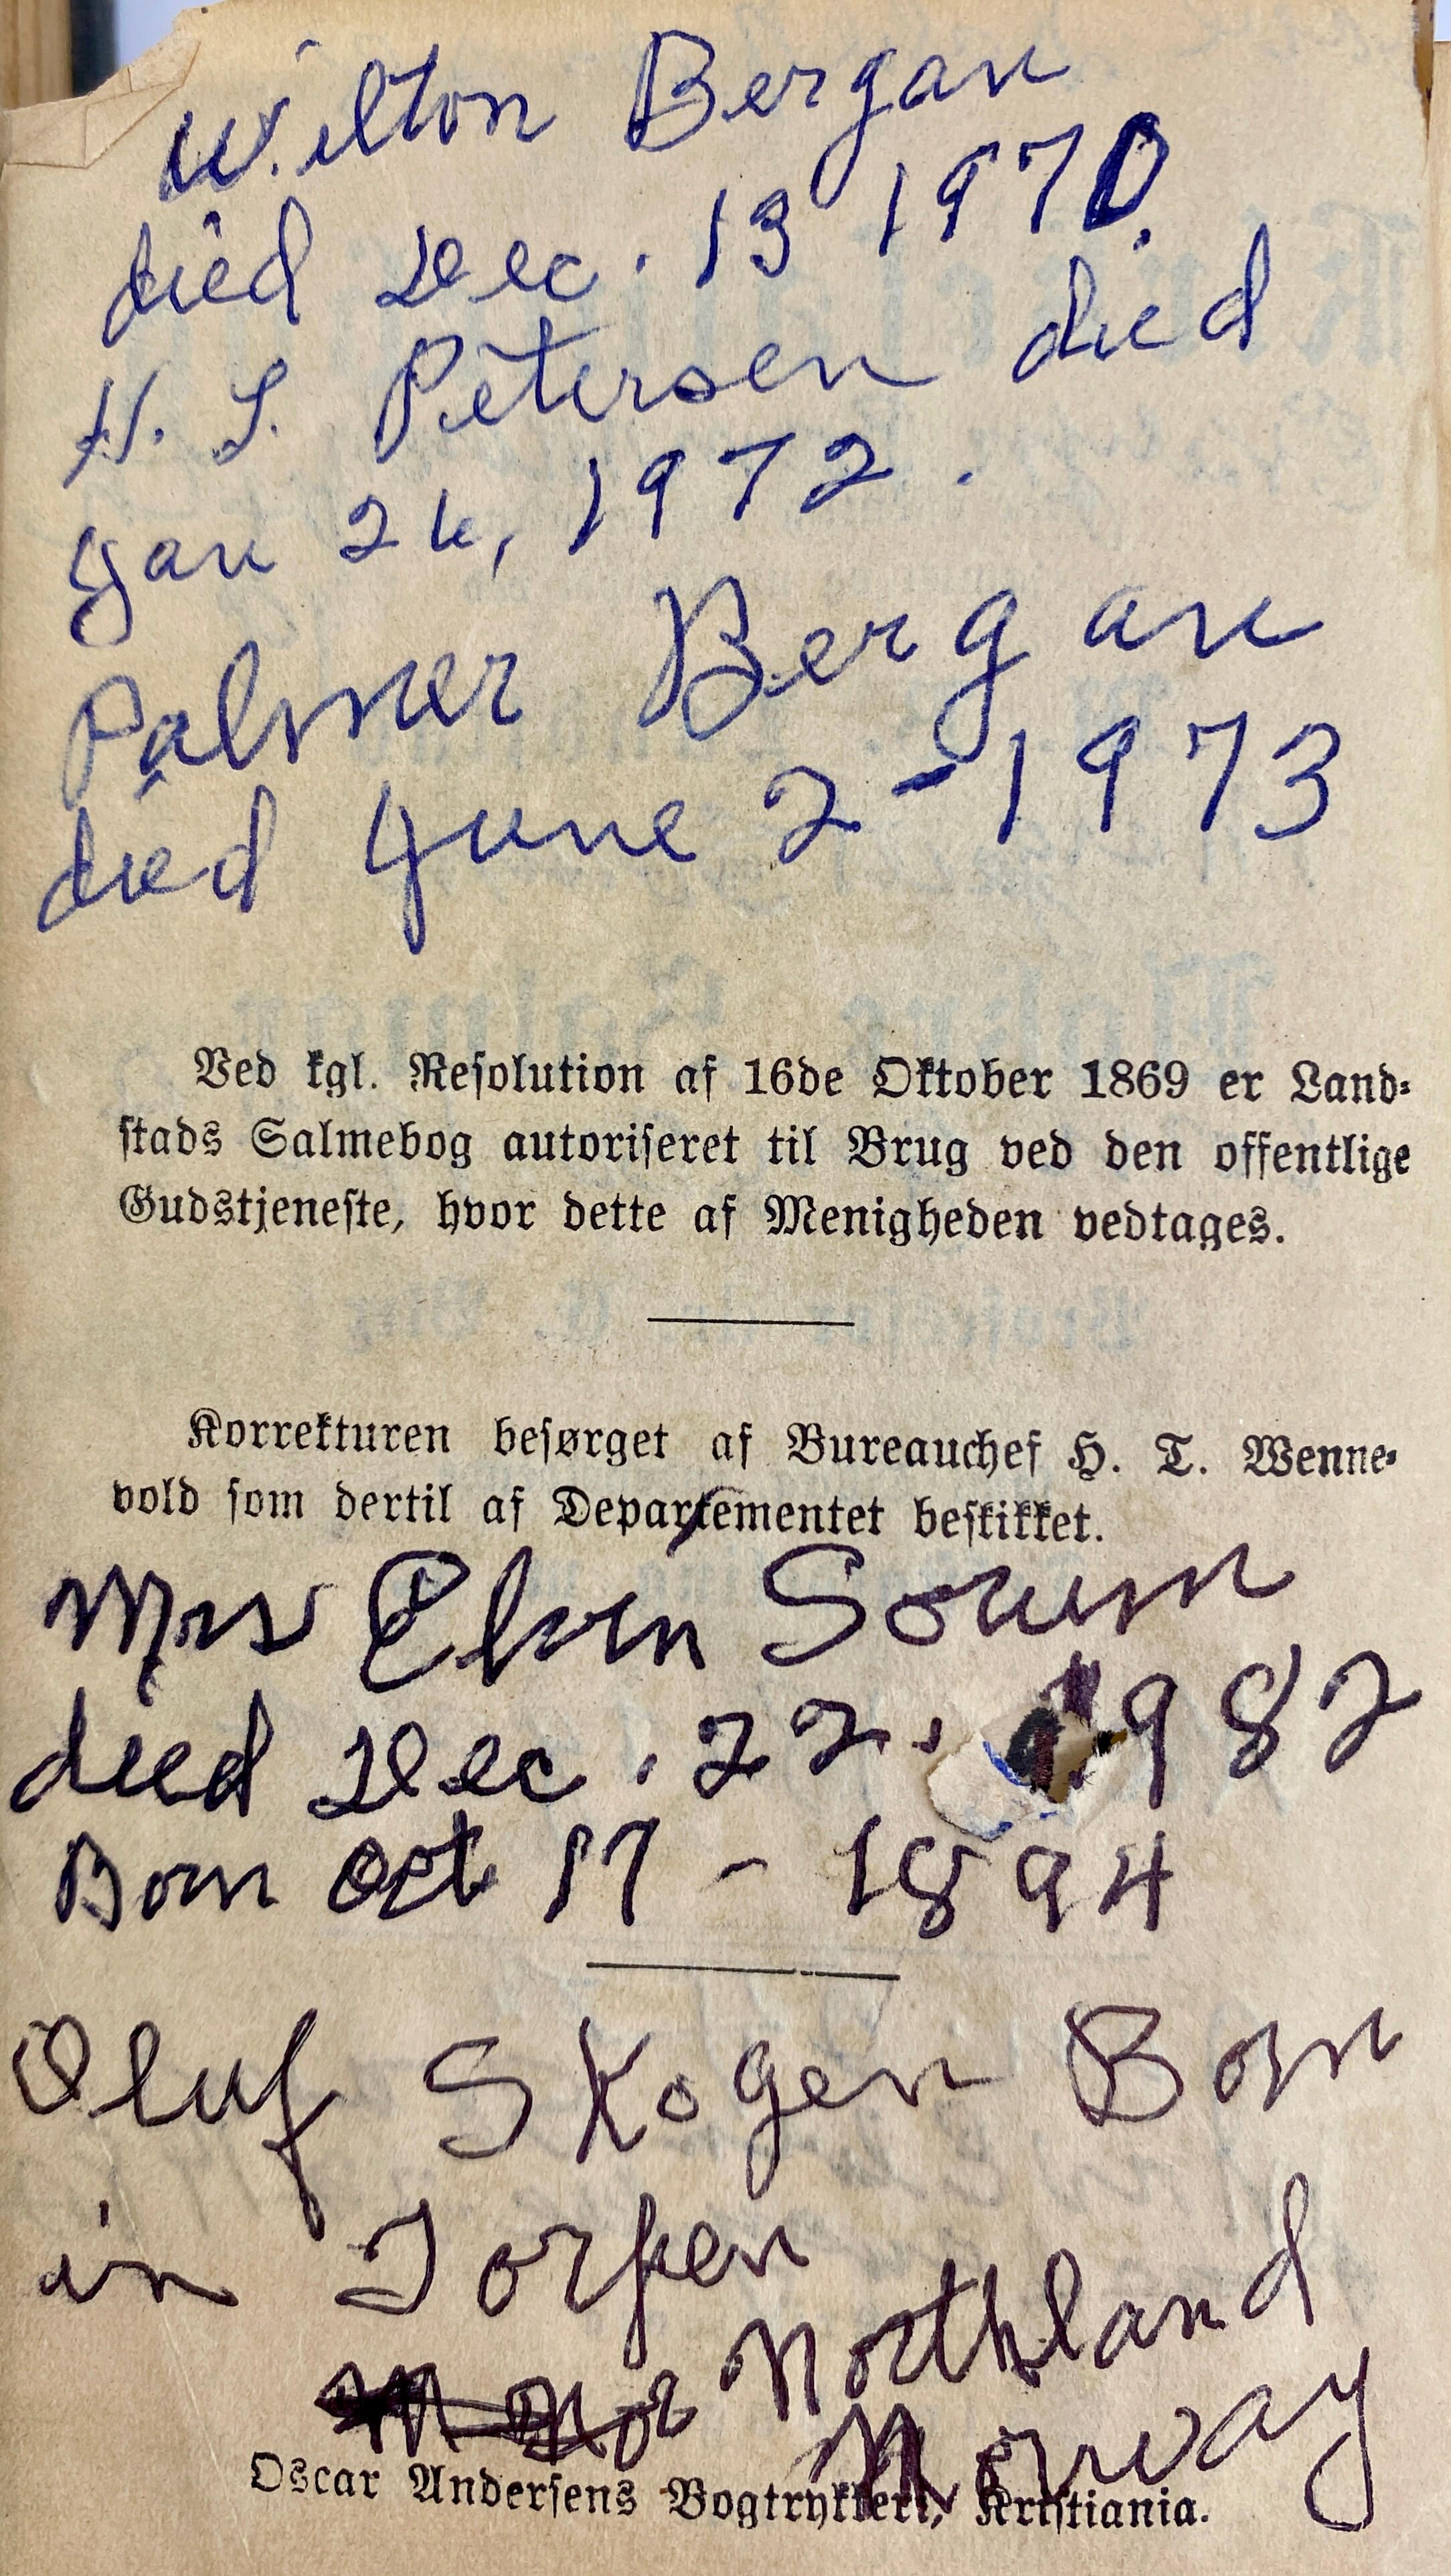 Wilton Bergan
died Dec. 13 1970.
H. S. Petersen died
Jan 26, 1972.
Palmer Bergan
died June 2-1973
Ved kgl. Resolution af 16de Oktober 1869 er Land-
stads Salmebog autoriseret til Brug ved den offentlige
Gudstjeneste, hvor dette af Menigheden vedtages.
Korrekturen besørget af Bureauchef H. T. Wenne-
vold som dertil af Departementet beskikket.
Mrs Elvin Sorum
died Dec. 22. 1982
Born Oct 17 - 1894
Oluf Skogen Born
in Torpen
Northland
Norway
Oscar Andersens Bogtrykkeri, Kristiania.